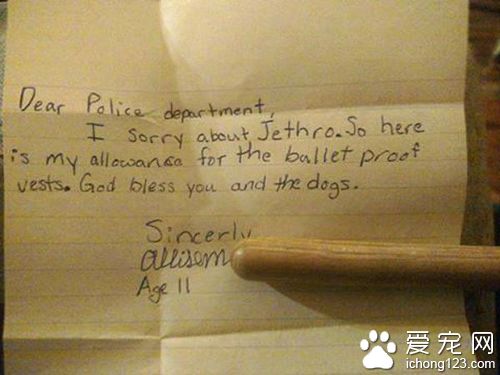 Dear Police department,
I sorry about Jethro. So here
is my allowansa for the bullet proof
vests. God bless you and the dogs.
Sincerly
Allison
Age 11
爱宠网
ichong123.com